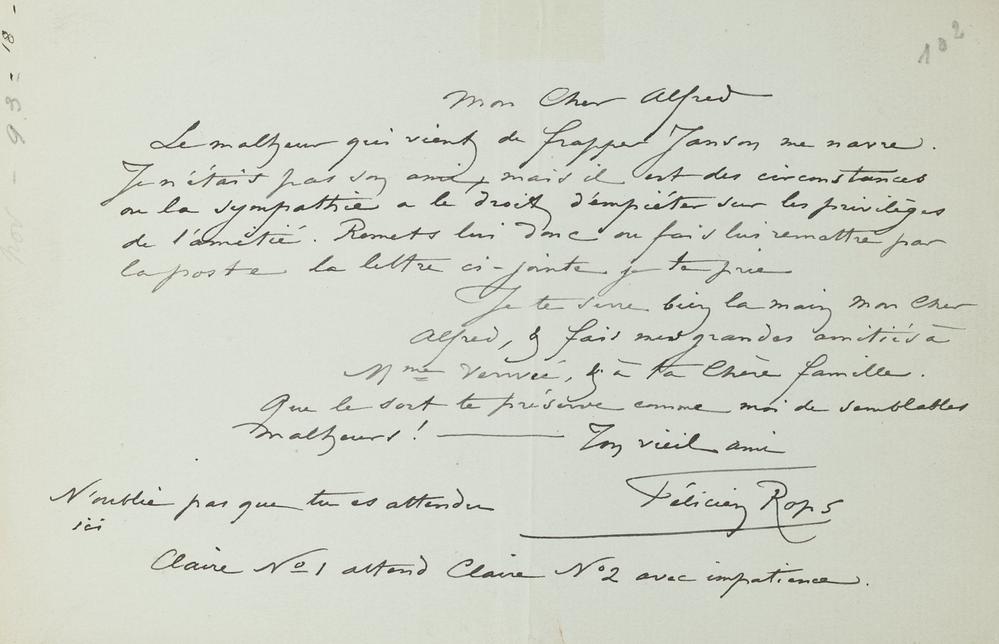 102
Mon Cher Alfred
Le malheur qui vient de frapper Janson me navre.
Je n'étais pas son ami, mais il est des circonstances
ou la sympathie a le droit d'empiéter sur les privilèges
de l'amitié. Remets lui donc ou fais lui remettre par
la poste la lettre ci-jointe je te prie
Je te serre bien la main mon Cher
Alfred, & fais mes grandes amitiés à
Mme Verwée, & à ta Chère famille.
Que le sort te préserve comme moi de semblables
malheurs! — Ton vieil ami
Félicien Rops
N'oublie pas que tu es attendu
ici
Claire No 1 attend Claire No 2 avec impatience.